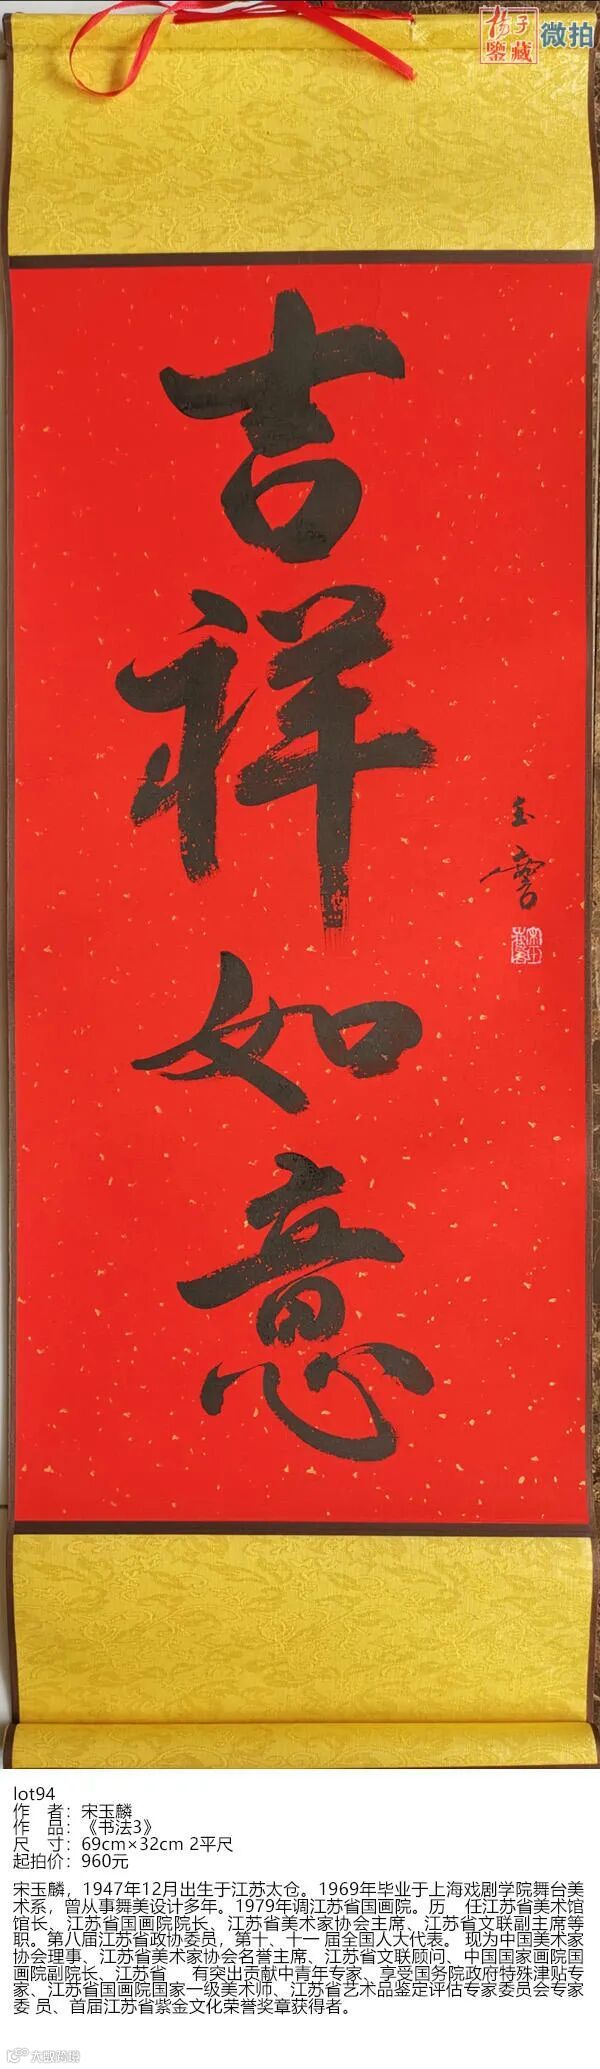 杨子
鉴藏
微拍
吉祥如意
玉麐
lot94
作 者：宋玉麟
作 品：《书法3》
尺 寸：69cm×32cm 2平尺
起拍价：960元
宋玉麟，1947年12月出生于江苏太仓。1969年毕业于上海戏剧学院舞台美
术系，曾从事舞美设计多年。1979年调江苏省国画院。历 任江苏省美术馆
馆长、江苏省国画院院长、江苏省美术家协会主席、江苏省文联副主席等
职。第八届江苏省政协委员，第十、十一 届全国人大代表。 现为中国美术家
协会理事、江苏省美术家协会名誉主席、江苏省文联顾问、中国国家画院国
画院副院长、江苏省 有突出贡献中青年专家、享受国务院政府特殊津贴专
家、江苏省国画院国家一级美术师、江苏省艺术品鉴定评估专家委员会专家
委 员、首届江苏省紫金文化荣誉奖章获得者。
大数跨境